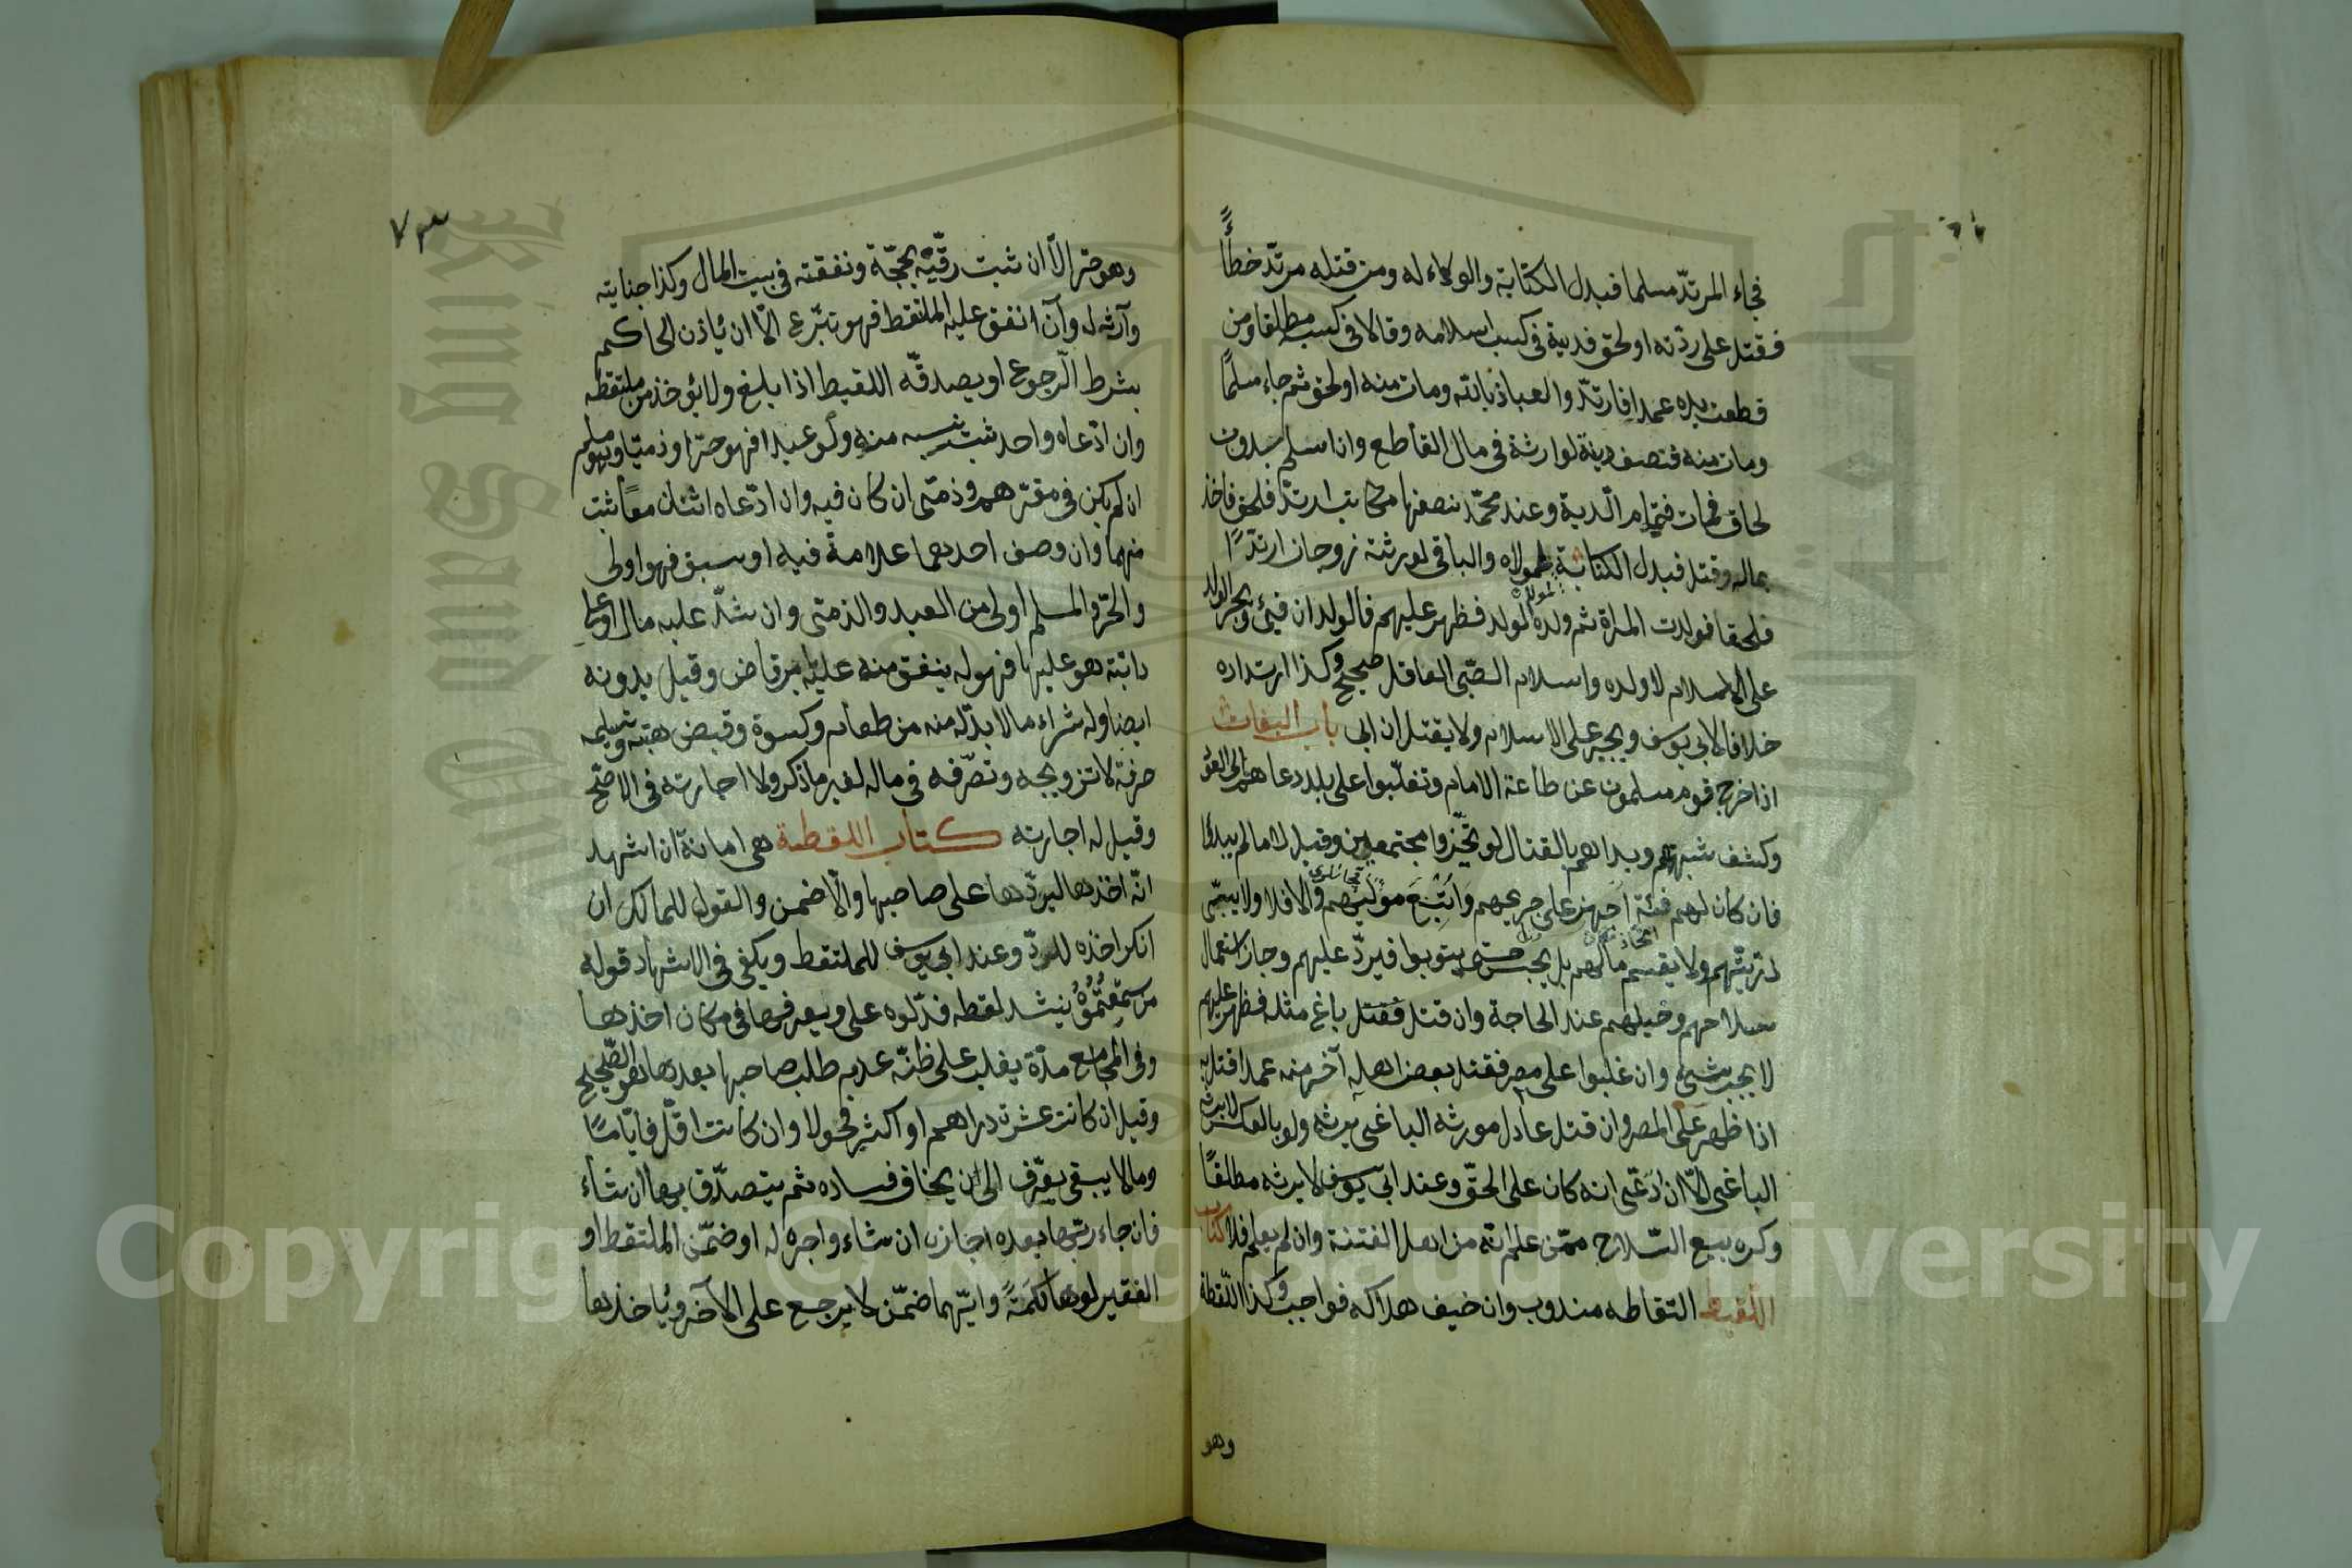 فجاء المرتدّ مسلما فبدل الكتابة والولاء له ومن قتله مرتدّ خطأً
فقتل على ردّته او لحق فدية فى كسب اسلامه وقالا فى كسبه مطلقا ومن
قطعت يده عمدا فارتدّ والعياذ بالله ومات منه او لحق ثم جاء مسلمًا
ومات منه فنصف دية لوارثه فى مال القاطع وان اسلم بدون
لحاق فمات فتمام الدية وعند محمّد نصفها مكاتب ارتدّ فلحق فاخذ
بماله وقتل فبدل الكتابة لمولاه والباقى لورثته زوجان ارتدّا
فلحقا فولدت المراة ثم ولد للمولود ولد فظهر عليهم فالولدان فيئ ويجبر الولد
على الاسلام لا ولده واسلام الصّبى العاقل صحيح وكذا ارتداده
خلافا لابى يوسف ويجبر على الاسلام ولا يقتل ان ابى باب البغات
اذا خرج قوم مسلمون عن طاعة الامام وتغلّبوا على بلد دعاهم الى العود
وكشف شبهتهم وبداهم بالقتال لو تحيّزوا مجتمعين وقيل لا ما لم يبدؤا
فان كان لهم فئة اجهز على جريحهم واتّبع مولّيهم والا فلا ولا يسبى
ذريّتهم ولا يقسم مالهم بل يحبس حتى يتوبوا فيردّ عليهم وجاز استعمال
سلاحهم وخيلهم عند الحاجة وان قتل باغ مثله فظهر عليهم
لا يجب شيئ وان غلبوا على مصر فقتل بعض اهله آخر منه عمدا قتل به
اذا ظهر على المصر وان قتل عادل مورثه الباغى يرثه ولو بالعكس لا يرثه
الباغى الّا ان ادّعى انه كان على الحقّ وعند ابى يوسف لا يرثه مطلقًا
وكره بيع السّلاح ممّن علم انّه من اهل الفتنة وان لم يعلم فلا كتاب
اللقيط التقاطه مندوب وان خيف هلاكه فواجب وكذا اللّقطة
وهو
٧٣
وهو حرّ الّا ان ثبت رقّيّه بحجّة ونفقته فى بيت المال وكذا جنايته
وارثه له وان انفق عليه الملتقط فهو تبرّع الّا ان ياذن الحاكم
بشرط الرّجوع او يصدقّه اللقيط اذا بلغ ولا يؤخذ من ملتقطه
وان ادّعاه واحد ثبت نسبه منه ولو عبدا فهو حرّ او ذميّا وهو مسلم
ان لم يكن فى مقرّهم وذمّى ان كان فيه وان ادّعاه اثنان معًا ثبت
منهما وان وصف احدهما علامة فيه او سبق فهو اولى
والحرّ والمسلم اولى من العبد والذمّى وان شدّ عليه مال او على
دابّة هو عليها فهو له ينفق منه عليه بامر قاض وقيل بدونه
ايضا وله شراء ما لا بدّ له منه من طعام وكسوة وقبض هبته وتسليمه
حرفة لا تزويجه وتصرّفه فى ماله لغير ما ذكر ولا اجارته فى الاصحّ
وقيل له اجارته كتاب اللقطة هى امانة ان اشهد
انّه اخذها ليردّها على صاحبها والّا ضمن والقول للمالك ان
انكر اخذه للردّ وعند ابى يوسف للملتقط ويكفى فى الاشهاد قوله
من سمعتموه ينشد لقطه فدّلوه على ويعرفها فى مكان اخذها
وفى المجامع مدّة يغلب على ظنّه عدم طلب صاحبها بعدها هو الصّحيح
وقيل ان كانت عشرة دراهم او اكثر فحولا وان كانت اقلّ فايّامًا
وما لا يبقى يعرّف الى ان يخاف فساده ثم يتصدّق بها ان شاء
فان جاء ربّها بعده اجازه ان شاء واجره له او ضمّن الملتقط او
الفقير لو هالكةً وايّهما ضمّن لا يرجع على الآخر ويأخذها
Copyright © King Saud University
King Saud University